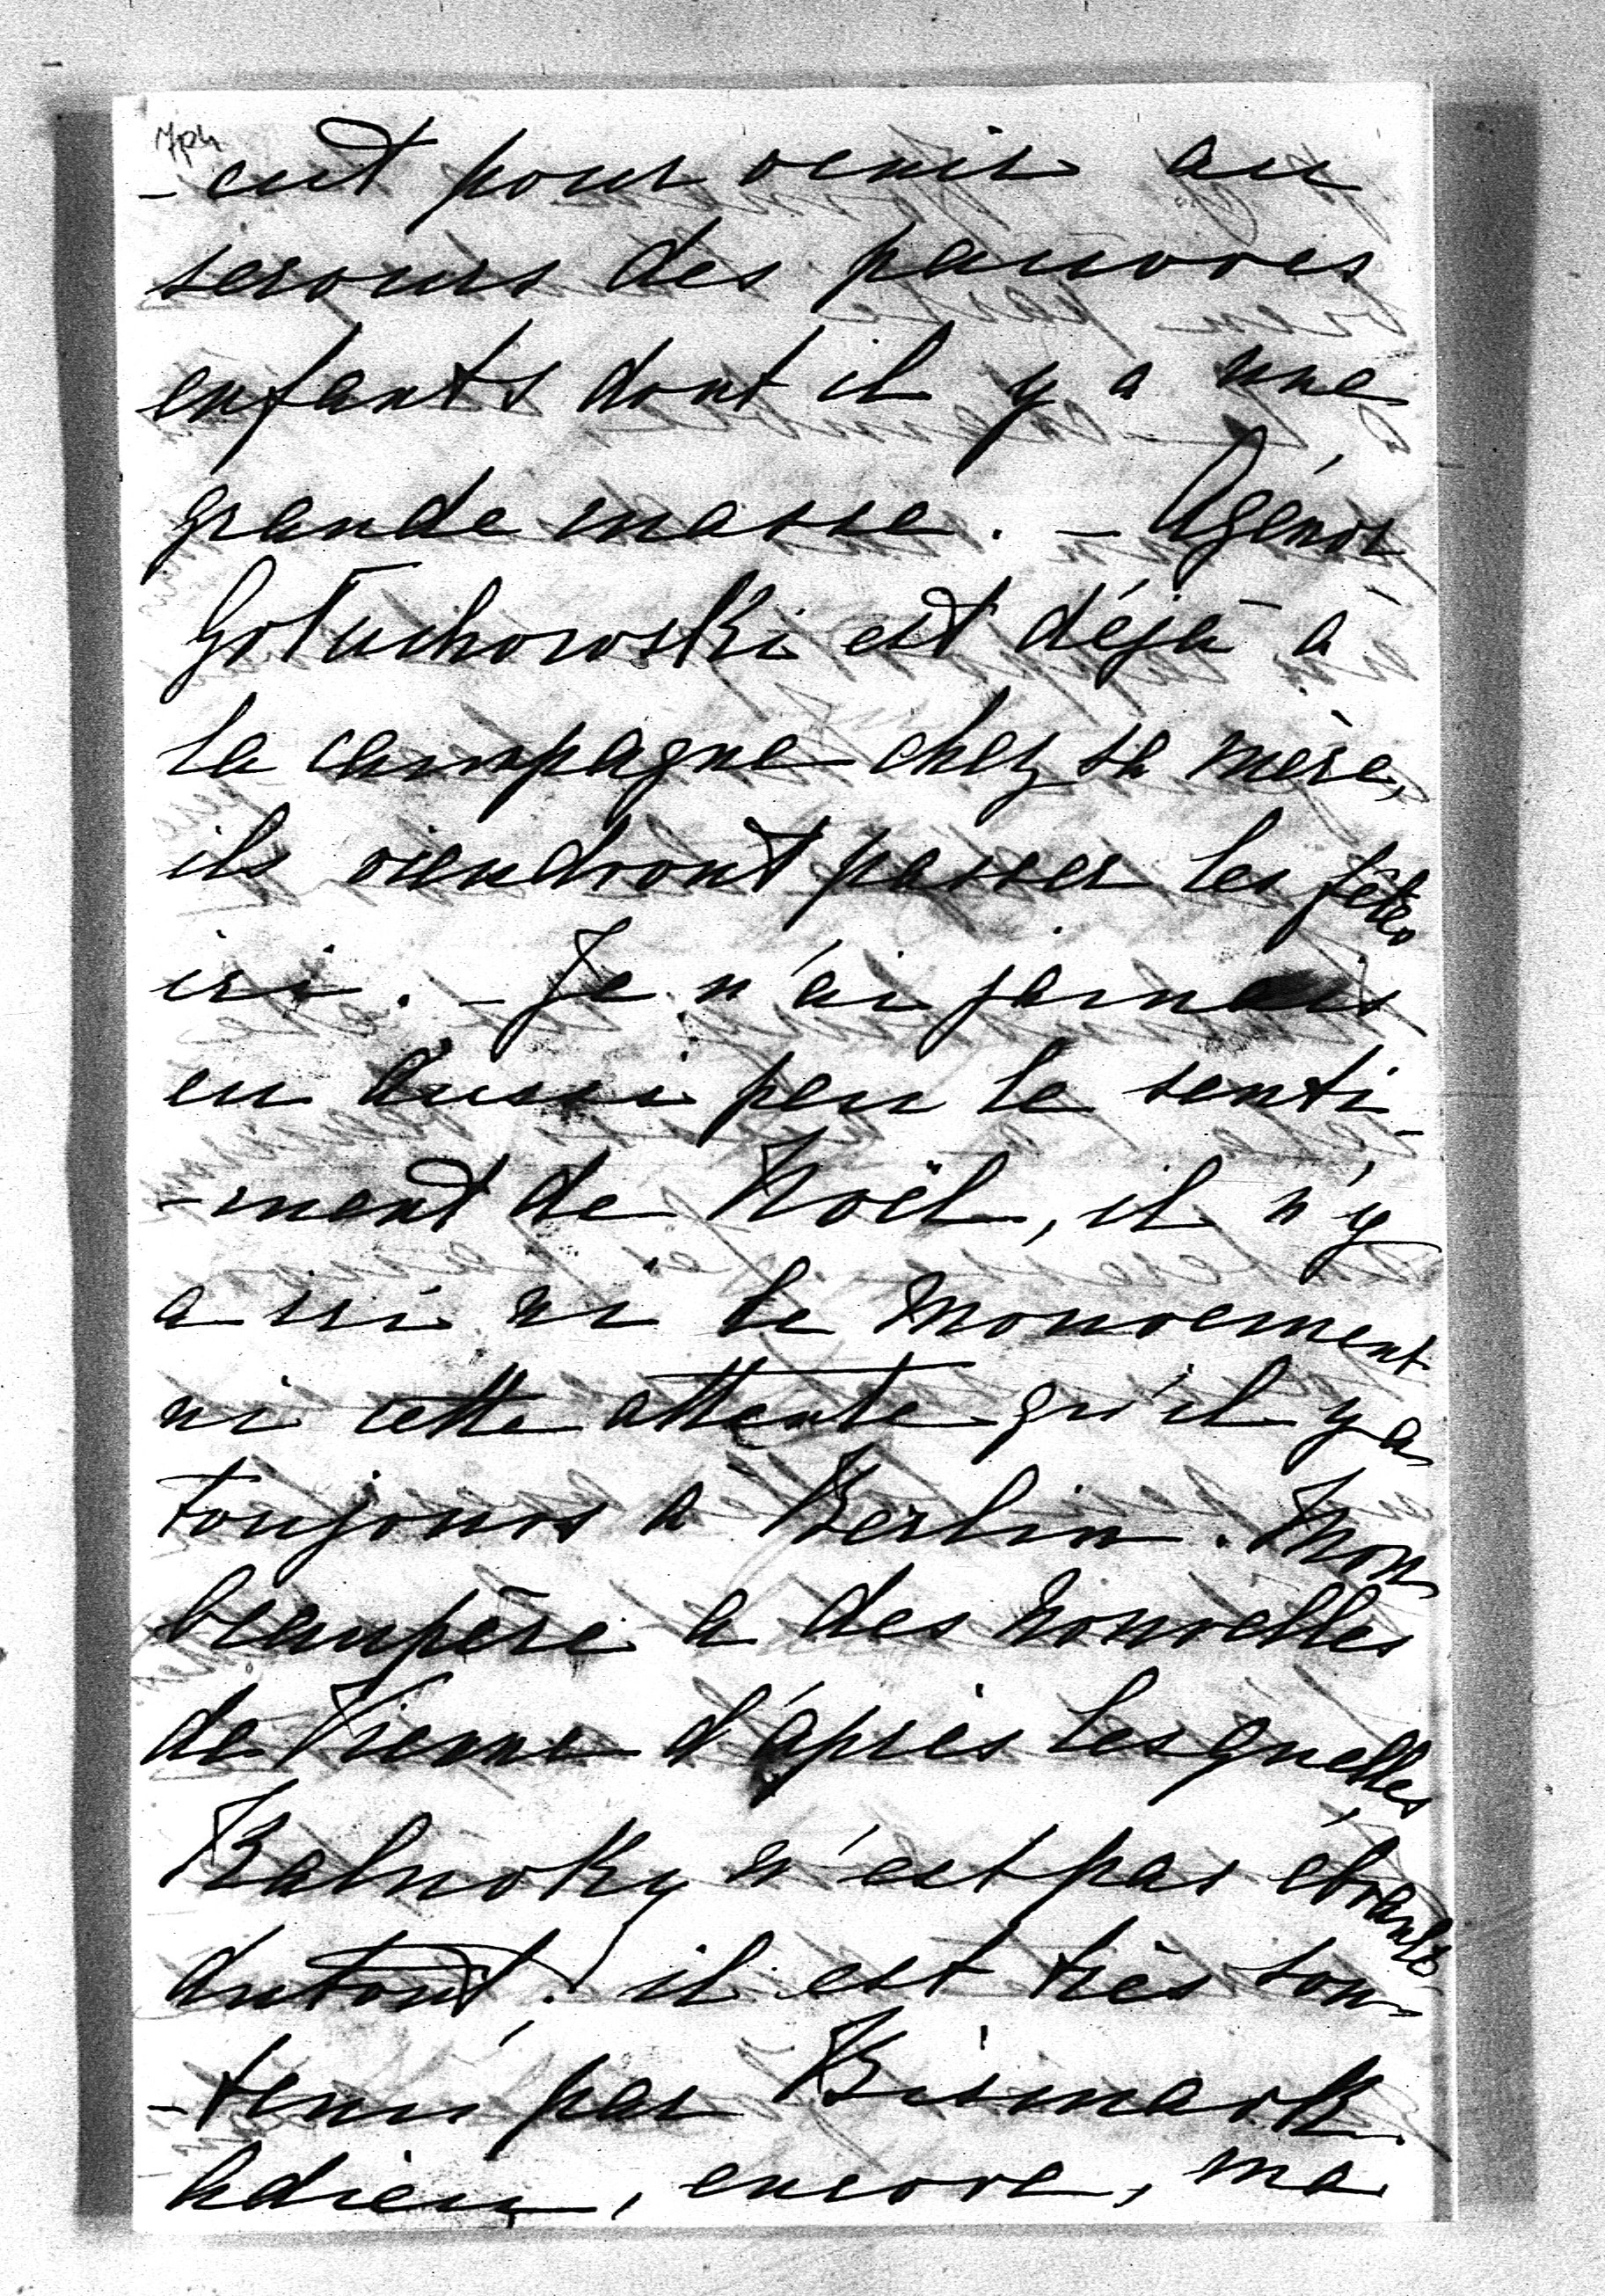 -cut pour venir au
secours des pauvres
enfants dont il y a une
grande masse. - Agénor
Gołuchowski est déjà à
la campagne chez sa mère,
ils viendront passer les fêtes
ici. - Je n'ai jamais
eu aussi peu le senti-
-ment de Noël, il n'y
a ici ni le mouvement
ni cette attente qu'il y a
toujours à Berlin. Mon
beaupère a des nouvelles
de Vienne d'après lesquelles
Kalnoky n'est pas ébranlé
dutout, il est très sou-
-tenu par Bismark.
Adieu, encore, ma